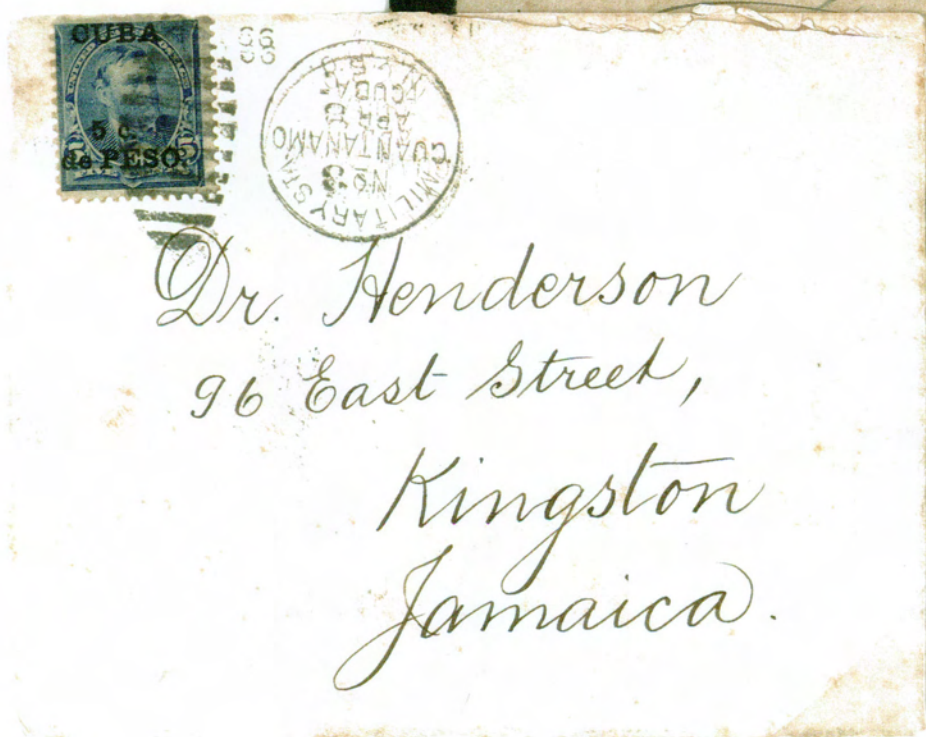 CUBA
UNITED
5 c.
de PESO.
MILITARY STA.
No. 3
GUANTANAMO
APR
CUBA
Dr. Henderson
96 East Street,
Kingston
Jamaica.